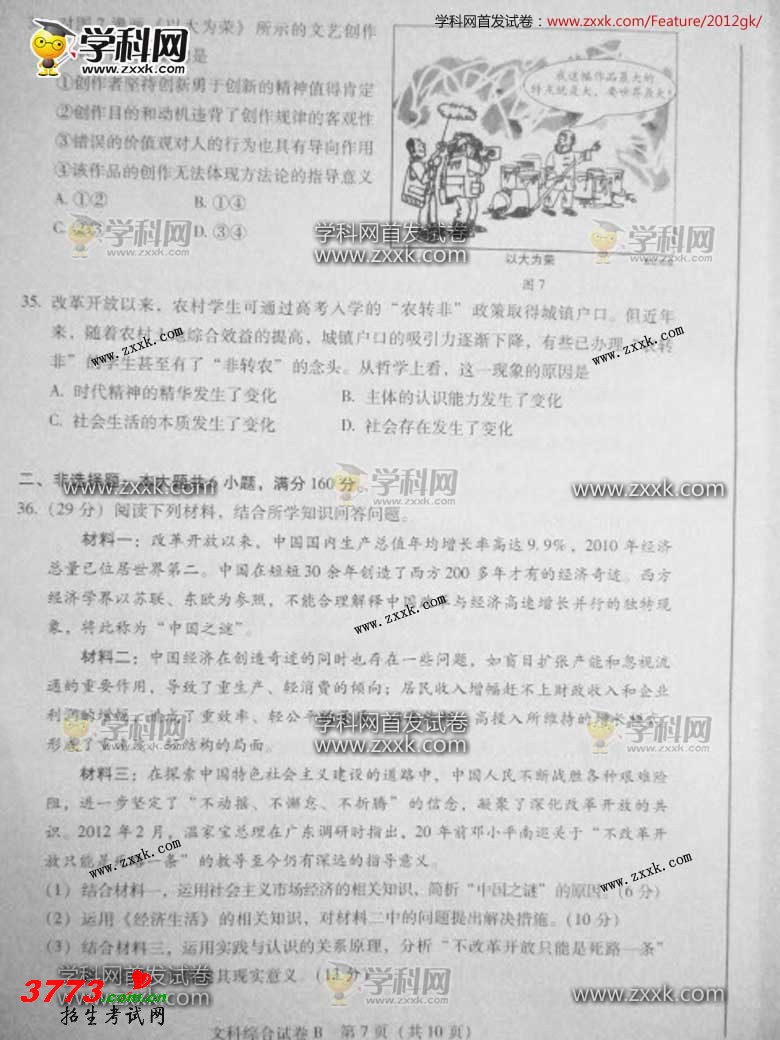 学科网首发试卷:www.zxxk.com/Feature/2012gk/
学科网
www.zxxk.com
《以大为荣》所示的文艺创作
是
①创作者坚持创新勇于创新的精神值得肯定
②创作目的和动机违背了创作规律的客观性
③错误的价值观对人的行为也具有导向作用
④该作品的创作无法体现方法论的指导意义
A. ①② B. ①④
C. D. ③④
我这幅作品最大的
特点就是大,要世界最大!
以大为荣
图7
学科网
学科网首发试卷
www.zxxk.com
学科网
35. 改革开放以来,农村学生可通过高考入学的“农转非”政策取得城镇户口。但近年
来,随着农村土地综合效益的提高,城镇户口的吸引力逐渐下降,有些已办理“农转
非”的学生甚至有了“非转农”的念头。从哲学上看,这一现象的原因是
A. 时代精神的精华发生了变化 B. 主体的认识能力发生了变化
C. 社会生活的本质发生了变化 D. 社会存在发生了变化
www.zxxk.com
www.zxxk.com
二、非选择题:本大题共6小题,满分160分。
学科网首发试卷
www.zxxk.com
学科网
www.zxxk.com
学科网首发试卷
www.zxxk.com
36.(29分)阅读下列材料,结合所学知识回答问题。
材料一:改革开放以来,中国国内生产总值年均增长率高达9.9%,2010年经济
总量已位居世界第二。中国在短短30余年创造了西方200多年才有的经济奇迹。西方
经济学界以苏联、东欧为参照,不能合理解释中国改革与经济高速增长并行的独特现
象,将此称为“中国之谜”。
www.zxxk.com
材料二:中国经济在创造奇迹的同时也存在一些问题,如盲目扩张产能和忽视流
通的重要作用,导致了重生产、轻消费的倾向;居民收入增幅赶不上财政收入和企业
利润的增幅,造成了重效率、轻公平的 高投入所维持的增长
形成了重 结构的局面。
学科网
www.zxxk.com
学科网首发试卷
www.zxxk.com
学科网
www.zxxk.com
材料三:在探索中国特色社会主义建设的道路中,中国人民不断战胜各种艰难险
阻,进一步坚定了“不动摇、不懈怠、不折腾”的信念,凝聚了深化改革开放的共
识。2012年2月,温家宝总理在广东调研时指出,20年前邓小平南巡关于“不改革开
放只能是死路一条”的教导至今仍有深远的指导意义。
www.zxxk.com
www.zxxk.com
www.zxxk.com
(1)结合材料一,运用社会主义市场经济的相关知识,简析“中国之谜”的原因。(6分)
(2)运用《经济生活》的相关知识,对材料二中的问题提出解决措施。(10分)
(3)结合材料三,运用实践与认识的关系原理,分析“不改革开放只能是死路一条”
其现实意义。(13分)
学科网首发试卷
www.zxxk.com
学科网
www.zxxk.com
学科网首发试卷
www.zxxk.com
3773.com.cn
招生考试网
文科综合试卷B 第7页(共10页)